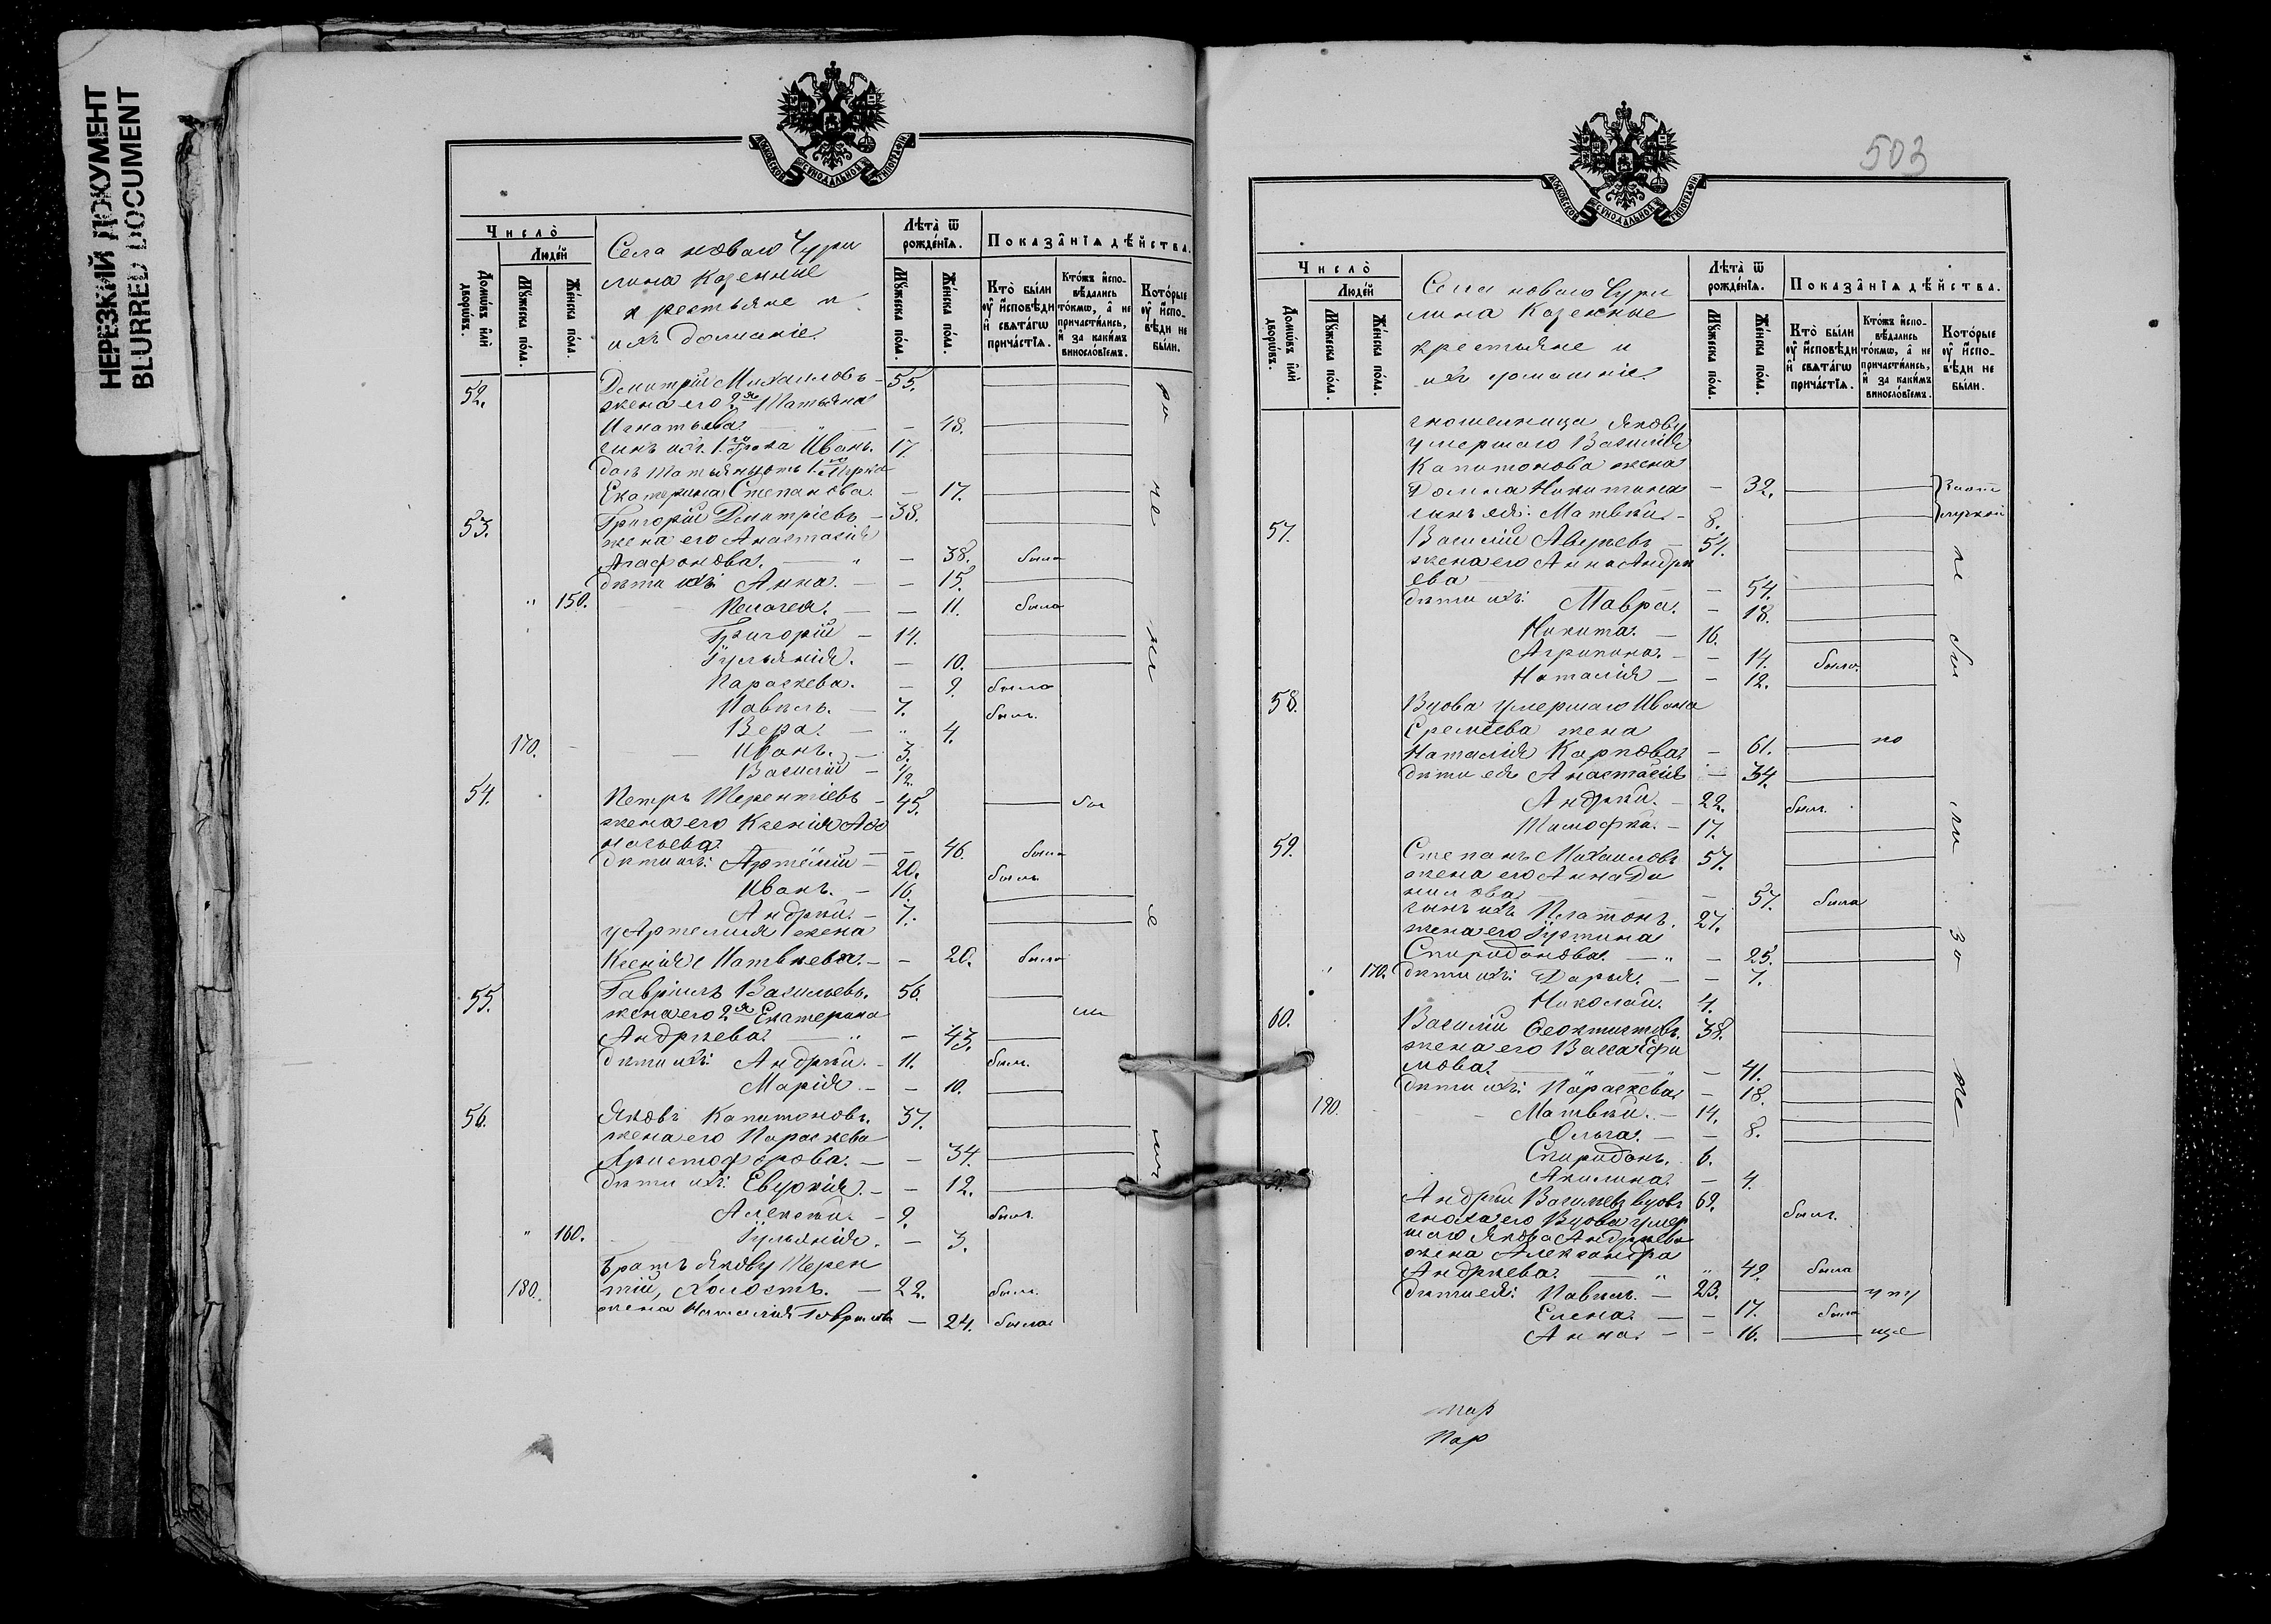 НЕРЕЗКИЙ ДОКУМЕНТ
BLURRED DOCUMENT
МОСКОВСКОЙ СѴНОДАЛЬНОЙ ТИПОГРАФІИ
Число̀
Людѐй
Домѡ́въ и҆лѝ дворѡ́въ.
Мꙋ́жеска по́ла.
Же́нска по́ла.
Села новаго Чури
лина Казенные
крестьяне и
ихъ домашніе
Лѣта̀ ѿ рожде́нїѧ.
Мꙋ́жеска по́ла.
Же́нска по́ла.
Показа̑нїѧ дѣ́йства.
Кто̀ бы́ли ᲂу҆ и҆сповѣ́ди и҆ свѧта́гѡ причастїѧ.
Кто́жъ и҆спо-вѣ́дались то́кмѡ, а҆ не причасти́лись, и҆ за каки́мъ винослόвїемъ.
Кото́рые ᲂу҆ и҆спо-вѣ́ди не бы́ли.
52. Димитрій Михаиловъ 55.
жена его 2я Татьяна
Игнатьева 48.
сынъ ихъ 1го брака Иванъ. 17
Екатерина Степанова 17.
53. Григорій Димитріевъ 38.
жена его Анастасія
Агафонова. 38. была
дѣти ихъ: Анна. 15.
" 150. Пелагея. 11. была
Григорій 14.
Іульянія. 10.
Параскева. 9. была
Павелъ. 7. былъ.
Вера. 4.
170. Иванъ. 3.
Василій 1/2.
54. Петръ Терентіевъ 45.
жена его Ксенія Афо
насьева 46. была
дѣти ихъ: Артемій 20. былъ
Иванъ. 16.
Андрей. 7.
у Артемія жена
Ксенія Матвѣева. 20. была
55. Гавріилъ Васильевъ. 56.
жена его 2я Екатерина
Андрѣева. 43.
дѣти ихъ: Андрей. 11. былъ.
Марія. 10.
56. Яковъ Капитоновъ. 37.
жена его Параскева
Христофорова. 34.
дѣти ихъ: Евдокія. 12.
Алексѣй. 9. былъ.
" 160. Іульянія. 3.
братъ Якову Терен
180. тій, холостъ. 22. былъ.
жена Наталія Гаврилова 24. была
503
МОСКОВСКОЙ СѴНОДАЛЬНОЙ ТИПОГРАФІИ
Число̀
Людѐй
Домѡ́въ и҆лѝ дворѡ́въ.
Мꙋ́жеска по́ла.
Же́нска по́ла.
Села новаго Чури
лина Казенные
крестьяне и
ихъ домашніе.
Лѣта̀ ѿ рожде́нїѧ.
Мꙋ́жеска по́ла.
Же́нска по́ла.
Показа̑нїѧ дѣ́йства.
Кто̀ бы́ли ᲂу҆ и҆сповѣ́ди и҆ свѧта́гѡ причастїѧ.
Кто́жъ и҆спо-вѣ́дались то́кмѡ, а҆ не причасти́лись, и҆ за каки́мъ винослόвїемъ.
Кото́рые ᲂу҆ и҆спо-вѣ́ди не бы́ли.
сношенница Якову
умершаго Василія
Капитонова жена
Домна Никитина 32.
сынъ ея: Матвѣй. 8.
57. Василій Авдѣевъ 54.
жена его Анна Андрѣ
ева 54.
дѣти ихъ: Мавра. 18.
Никита. 16.
Агрипина. 14. была.
Наталія 12.
58. Вдова умершаго Ивана
Еремѣева жена
Наталія Карпова 61.
дѣти ея Анастасія 34.
Андрей. 22. былъ.
Тимофей. 17.
59. Степанъ Михаиловъ 57.
жена его Анна Да
нилова 57. была
сынъ ихъ Платонъ. 27.
жена его Іустина
Спиридонова. 25.
" 170. дѣти ихъ: Дарья. 7.
Николай. 4.
60. Василій Феоктистовъ. 38.
жена его Васса Ефи
мова. 41.
дѣти ихъ: Параскева 18.
190. Матвѣй. 14.
Ольга. 8.
Спиридонъ. 6.
Акилина. 4.
Андрей Васильевъ вдовъ 69. былъ.
сноха его Вдова умер
шаго Якова Андрѣева
жена Александра
Андрѣева. 42. была
дѣти ея: Павелъ. 23.
Елена. 17. была
Анна. 16.
Пар